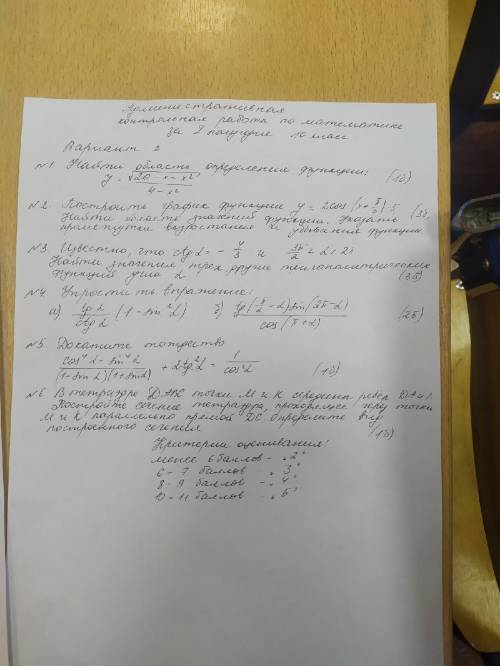 Административная
контрольная работа по математике
за I полугодие 10 класс
Вариант 2
№1. Найти область определения функции:
y = √(20 - x - x²) / (4 - x²) (1б)
№2. Построить график функции y = 2cos(x + π/3)
Найти область значений функции. Указать (3б)
промежутки возрастания и убывания функции
№3. Известно, что ctg α = - 4/3 и 3π/2 < α < 2π
Найти значения трех других тригонометрических
функций угла α (3б)
№4 Упростить выражение:
а) tg α / ctg α (1 - sin² α) б) tg(π/2 - α) sin(2π - α) / cos(π + α) (2б)
№5. Докажите тождество
(cos⁴ α - sin⁴ α) / ((1 - sin α)(1 + sin α)) + 2tg² α = 1 / cos² α (1б)
№6 В тетраэдре точки М и К середины ребер
Постройте сечение тетраэдра, проходящее через точки
М и К параллельно прямой DC. Определите вид
построенного сечения (1б)
Критерии оценивания:
менее 6 баллов - "2"
6 - 7 баллов - "3"
8 - 9 баллов - "4"
10 - 11 баллов - "5"